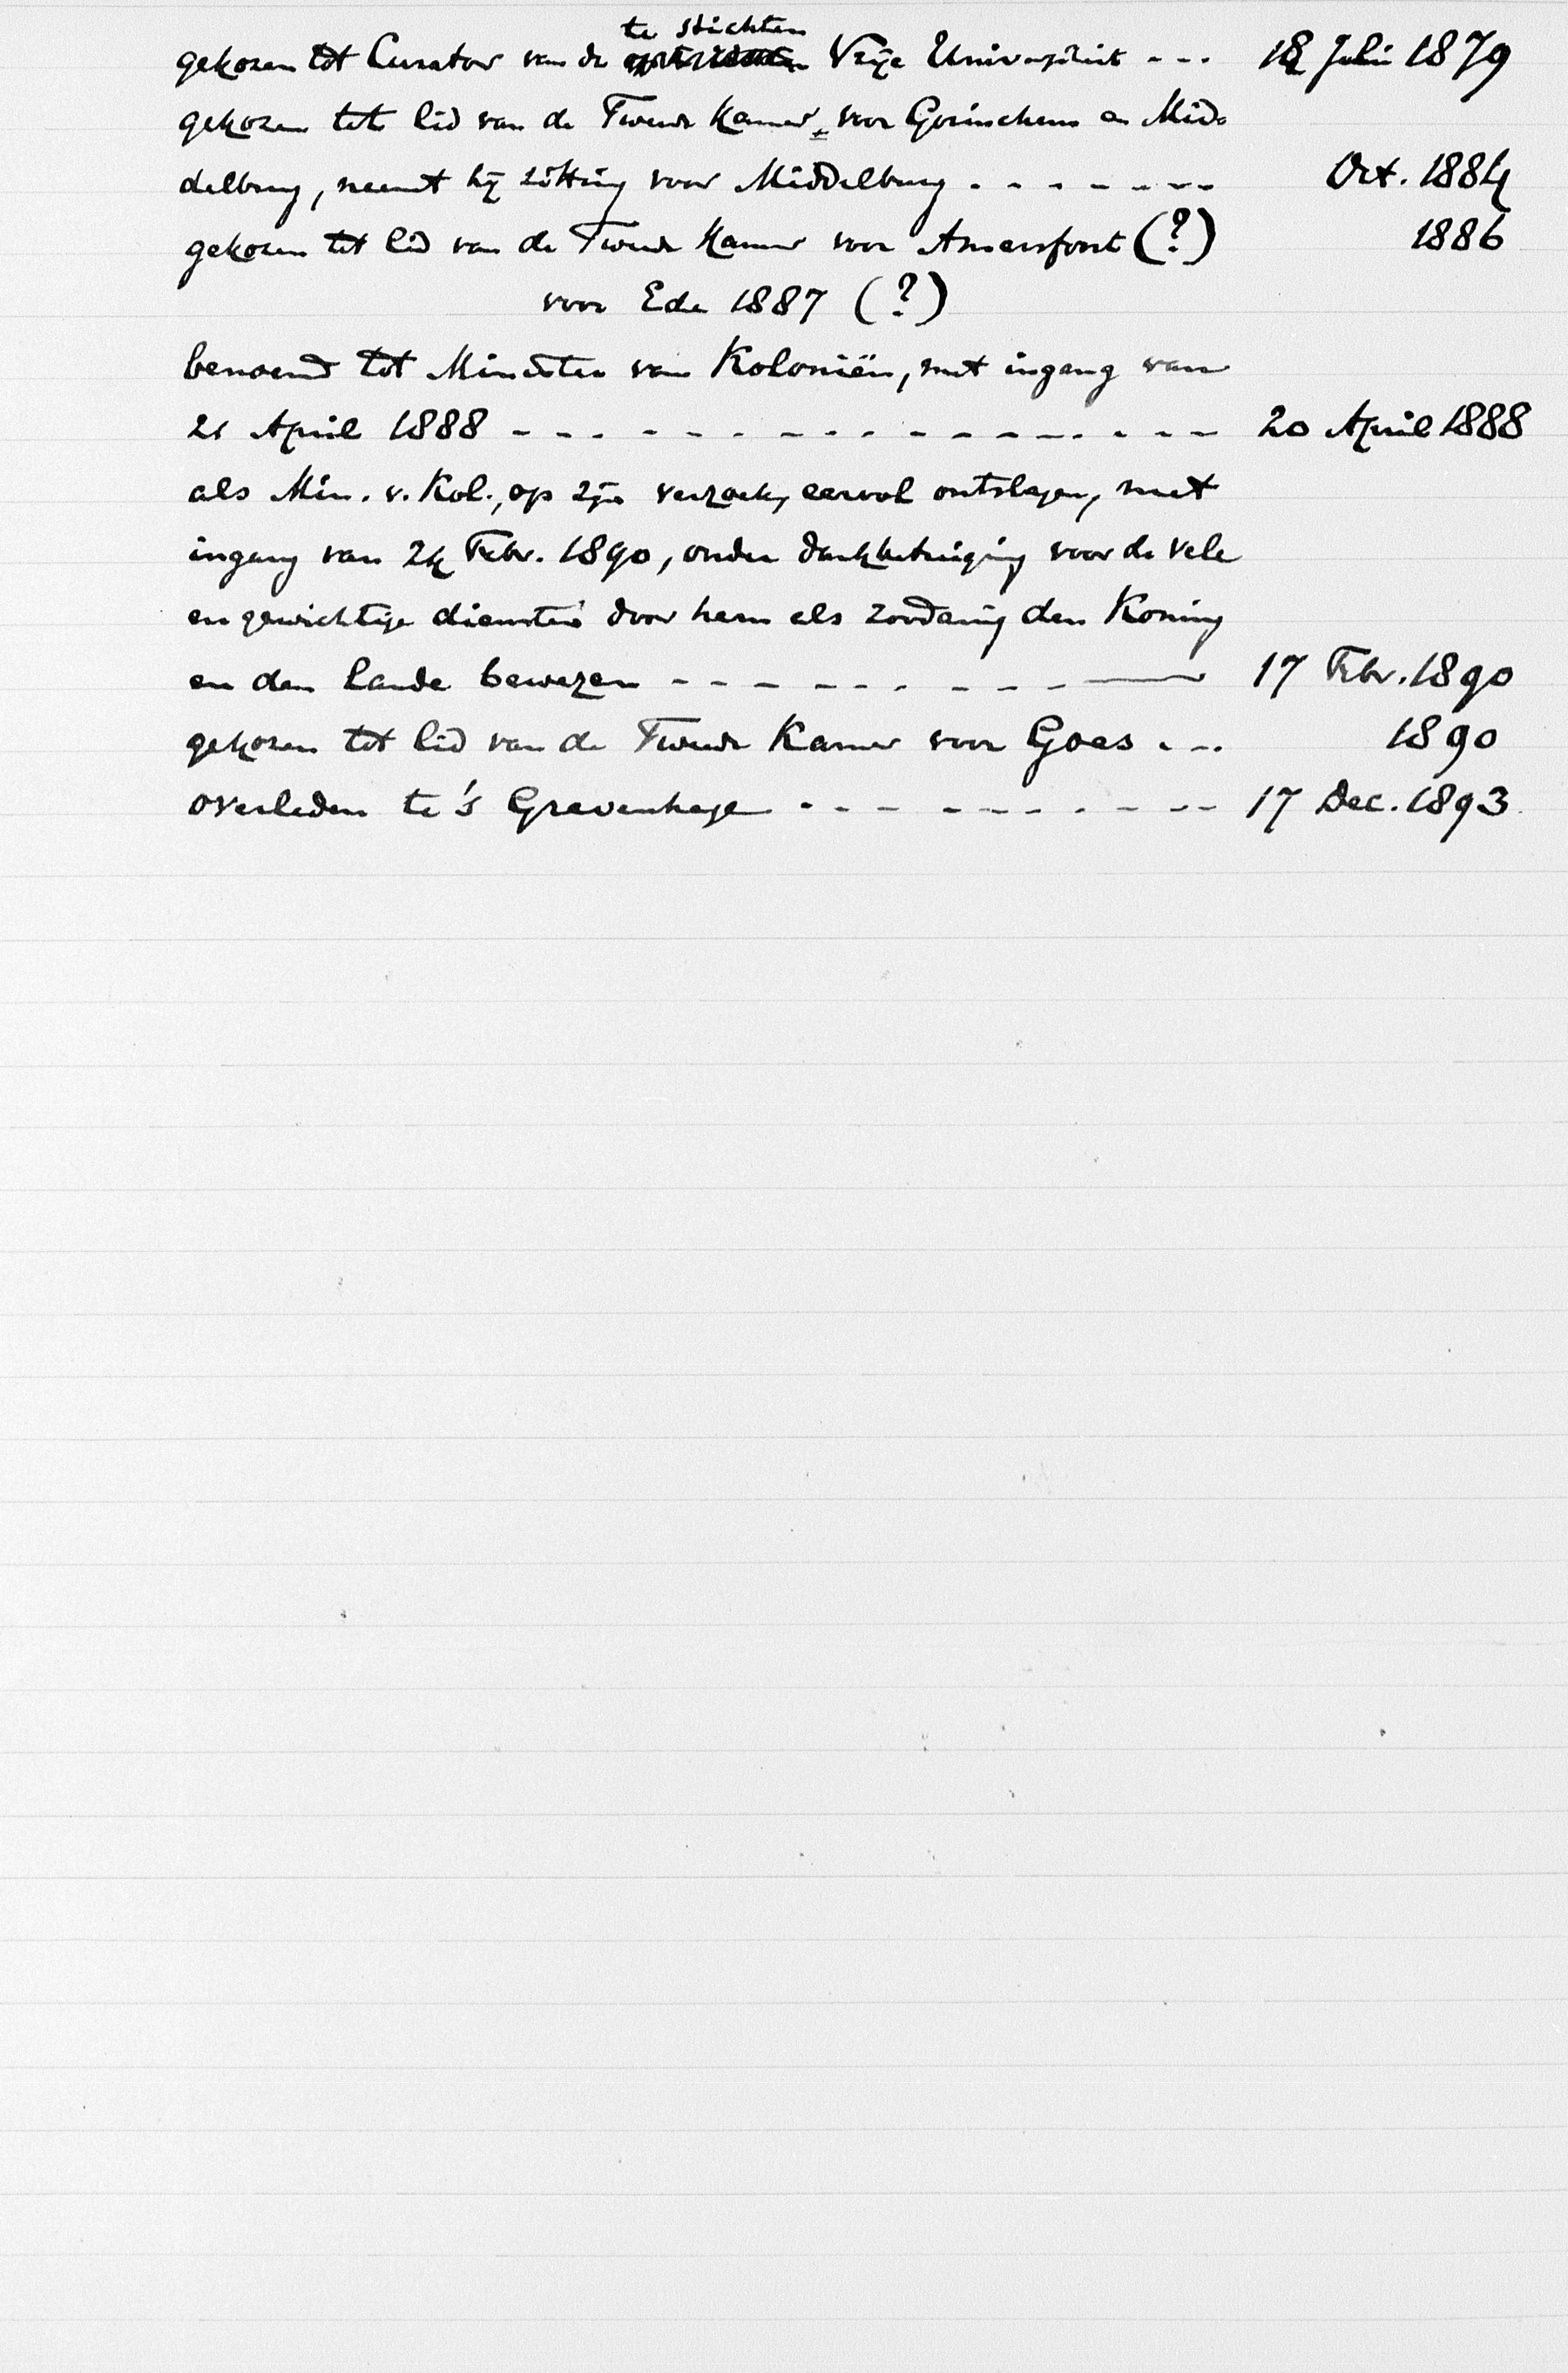 te stichten
gekozen tot Curator van de Vrije Universiteit --- 12 Juli 1879
gekozen tot lid van de Tweede Kamer, voor Gorinchem en Mid-
delburg, neemt hij zitting voor Middelburg . - - - - - - Oct. 1884
gekozen tot lid van de Tweede Kamer voor Amersfoort (?) 1886
voor Ede 1887 (?)
benoemd tot Minister van Koloniën, met ingang van
21 April 1888 - - - - - - - - - - - - - - - - 20 April 1888
als Min. v. Kol., op zijn verzoek, eervol ontslagen, met
ingang van 24 Febr. 1890, onder dankbetuiging voor de vele
en gewichtige diensten door hem als zoodanig den Koning
en den Lande bewezen - - - - - - - - - - 17 Febr. 1890
gekozen tot lid van de Tweede Kamer voor Goes . - . 1890
overleden te 's Gravenhage - - - - - - - - - - 17 Dec. 1893.